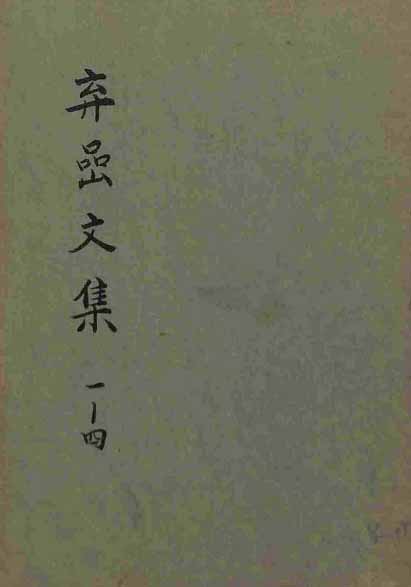 弃嵒文集 一—四